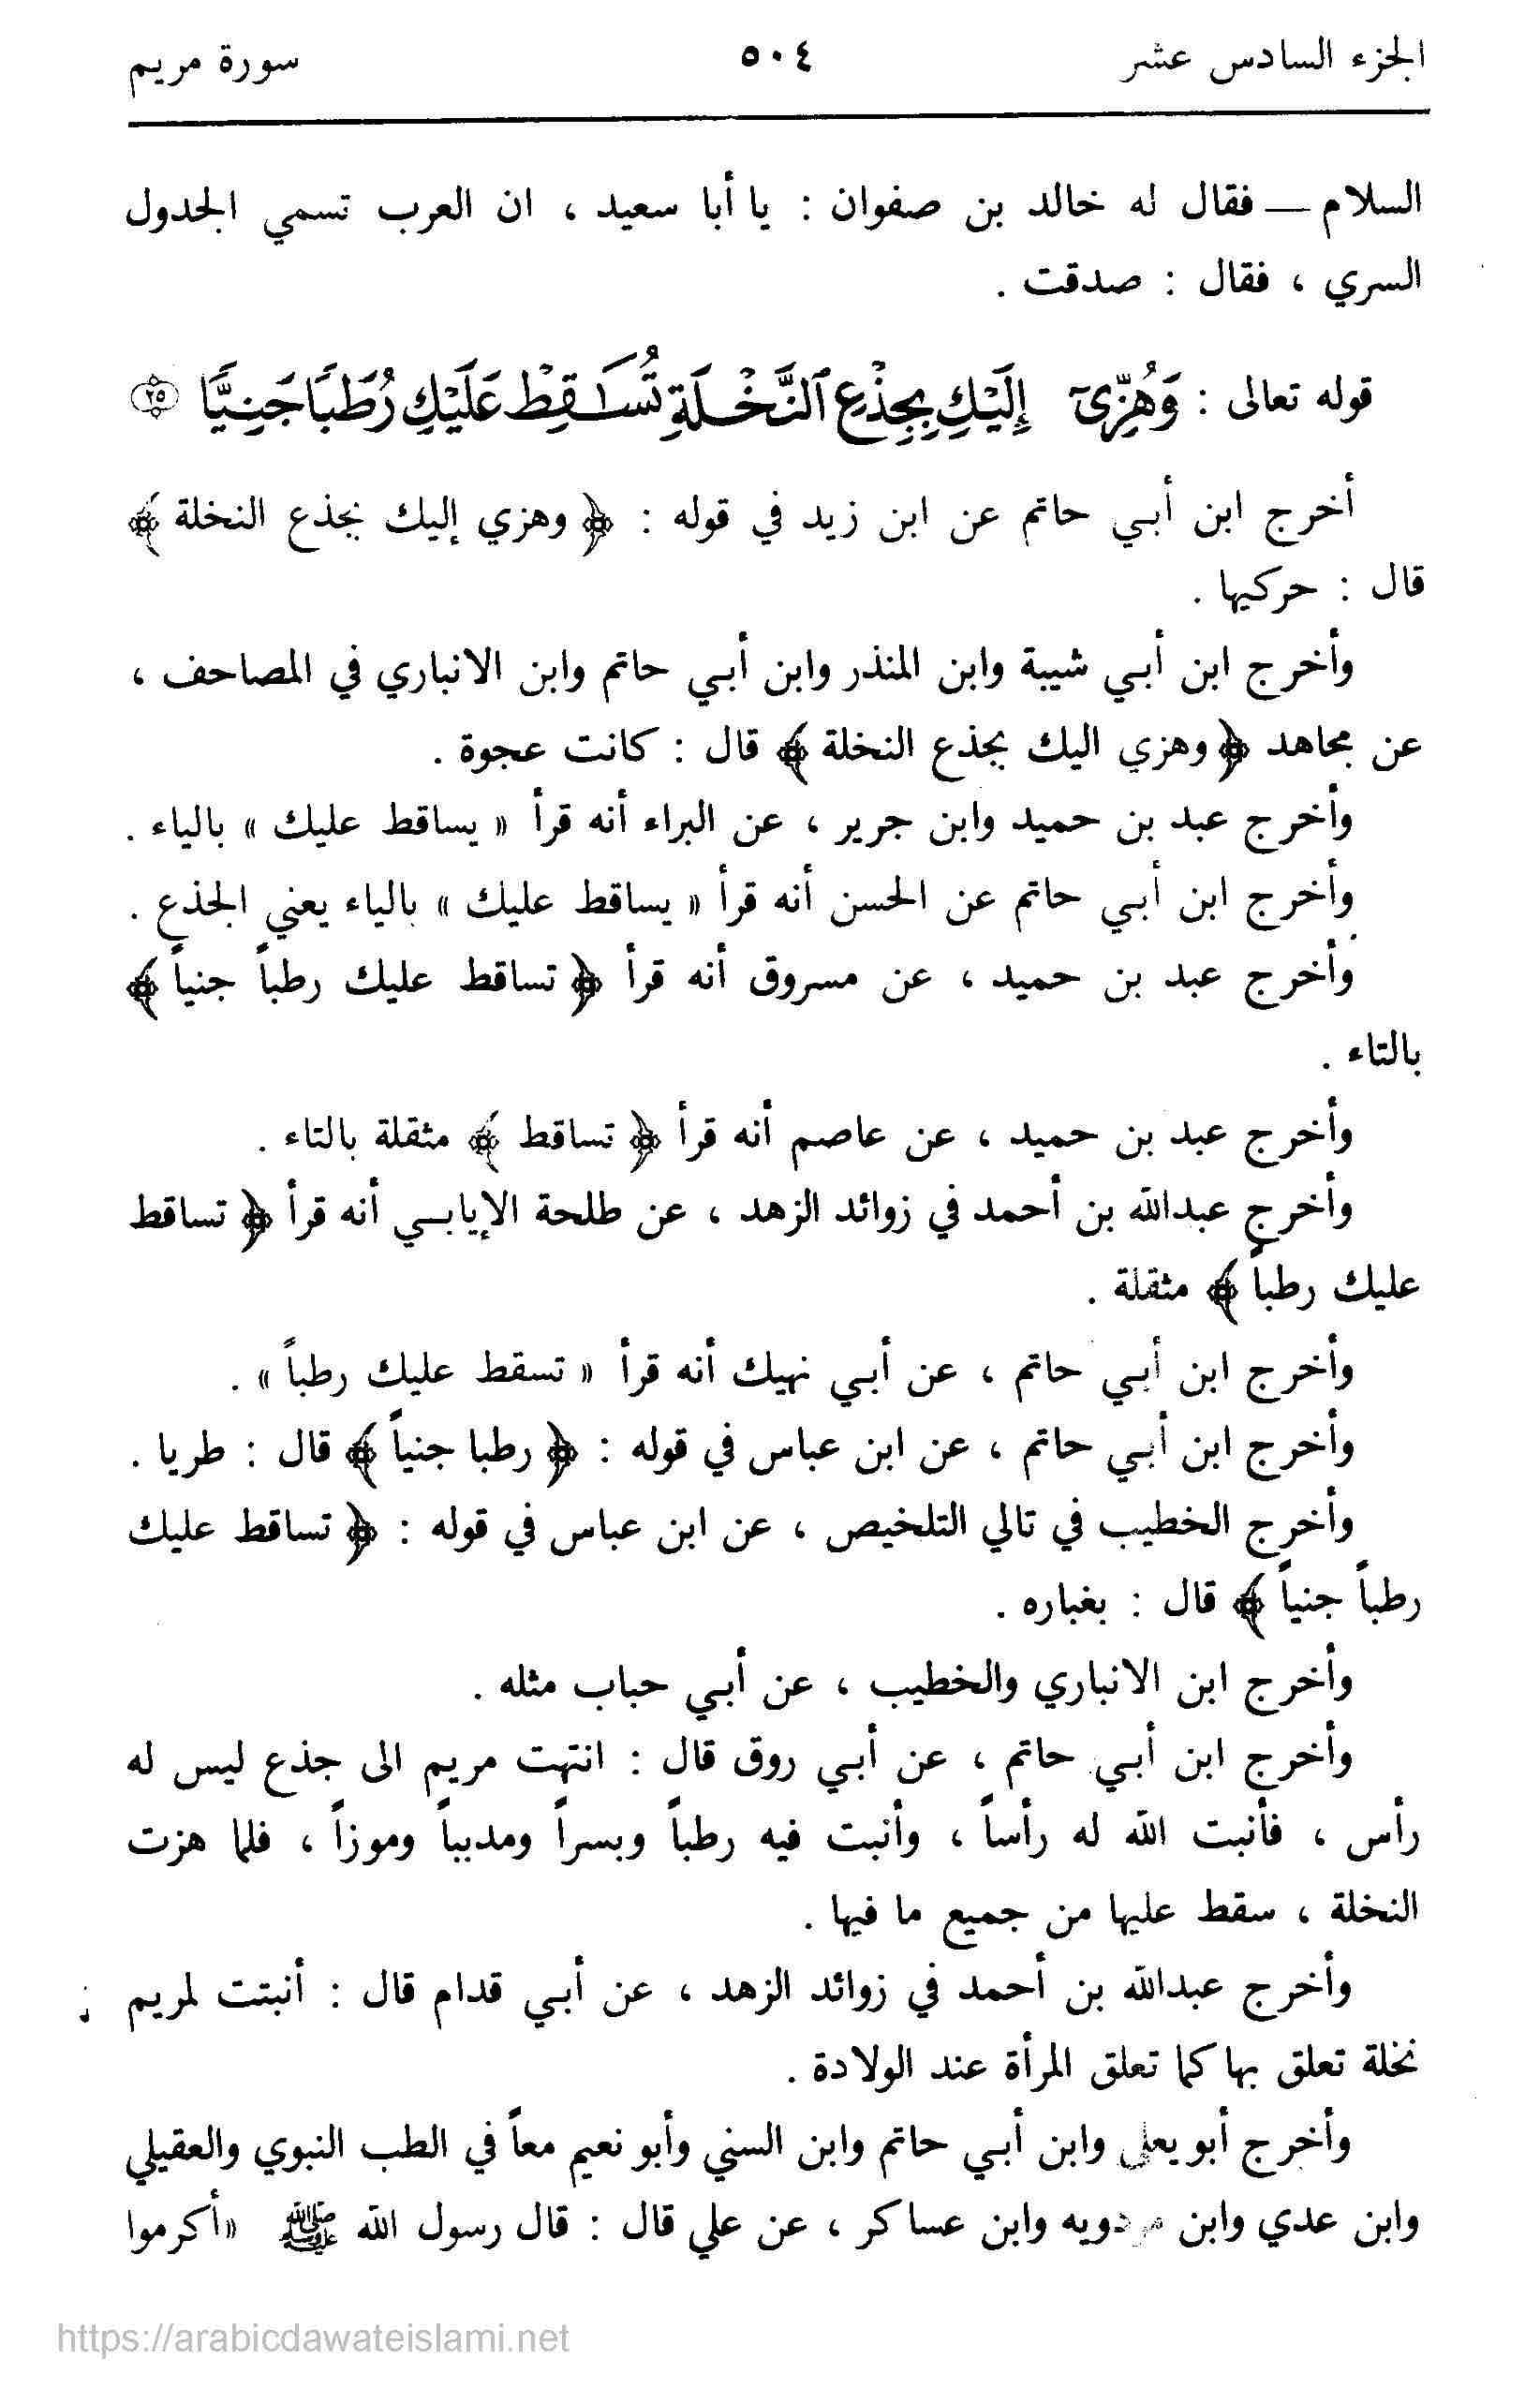 الجزء السادس عشر ٥٠٤ سورة مريم
السلام — فقال له خالد بن صفوان : يا أبا سعيد ، ان العرب تسمي الجدول
السري ، فقال : صدقت .
قوله تعالى : وَهُزِّىٓ إِلَيْكِ بِجِذْعِ ٱلنَّخْلَةِ تُسَٰقِطْ عَلَيْكِ رُطَبًا جَنِيًّا ﴿٢٥﴾
أخرج ابن أبـي حاتم عن ابن زيد في قوله : ﴿ وهزي إليك بجذع النخلة ﴾
قال : حركيها .
وأخرج ابن أبـي شيبة وابن المنذر وابن أبـي حاتم وابن الانباري في المصاحف ،
عن مجاهد ﴿ وهزي اليك بجذع النخلة ﴾ قال : كانت عجوة .
وأخرج عبد بن حميد وابن جرير ، عن البراء أنه قرأ « يساقط عليك » بالياء .
وأخرج ابن أبـي حاتم عن الحسن أنه قرأ « يساقط عليك » بالياء يعني الجذع .
وأخرج عبد بن حميد ، عن مسروق أنه قرأ ﴿ تساقط عليك رطباً جنياً ﴾
بالتاء .
وأخرج عبد بن حميد ، عن عاصم أنه قرأ ﴿ تساقط ﴾ مثقلة بالتاء .
وأخرج عبدالله بن أحمد في زوائد الزهد ، عن طلحة الإيابـي أنه قرأ ﴿ تساقط
عليك رطباً ﴾ مثقلة .
وأخرج ابن أبـي حاتم ، عن أبـي نهيك أنه قرأ « تسقط عليك رطباً » .
وأخرج ابن أبـي حاتم ، عن ابن عباس في قوله : ﴿ رطبا جنياً ﴾ قال : طريا .
وأخرج الخطيب في تالي التلخيص ، عن ابن عباس في قوله : ﴿ تساقط عليك
رطباً جنياً ﴾ قال : بغباره .
وأخرج ابن الانباري والخطيب ، عن أبـي حباب مثله .
وأخرج ابن أبـي حاتم ، عن أبـي روق قال : انتهت مريم الى جذع ليس له
رأس ، فأنبت الله له رأساً ، وأنبت فيه رطباً وبسراً ومدبباً وموزاً ، فلما هزت
النخلة ، سقط عليها من جميع ما فيها .
وأخرج عبدالله بن أحمد في زوائد الزهد ، عن أبـي قدام قال : أنبتت لمريم
نخلة تعلق بها كما تعلق المرأة عند الولادة .
وأخرج أبو يعلى وابن أبـي حاتم وابن السني وأبو نعيم معاً في الطب النبوي والعقيلي
وابن عدي وابن مردويه وابن عساكر ، عن علي قال : قال رسول الله ﷺ «أكرموا
https://arabicdawateislami.net